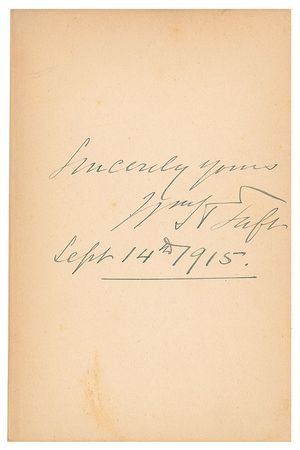 Sincerely yours
Wm H Taft
Sept 14th 1915.